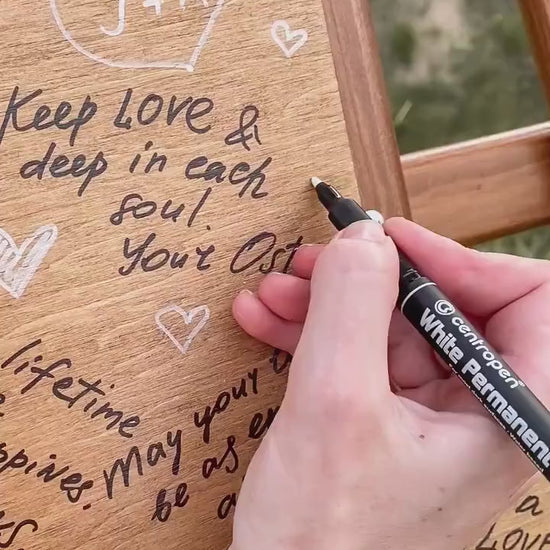 Keep Love &
deep in each
soul.
Your Ost
lifetime
ppines.
May your
be as
a
centropen
White Permanent
a
LOVE